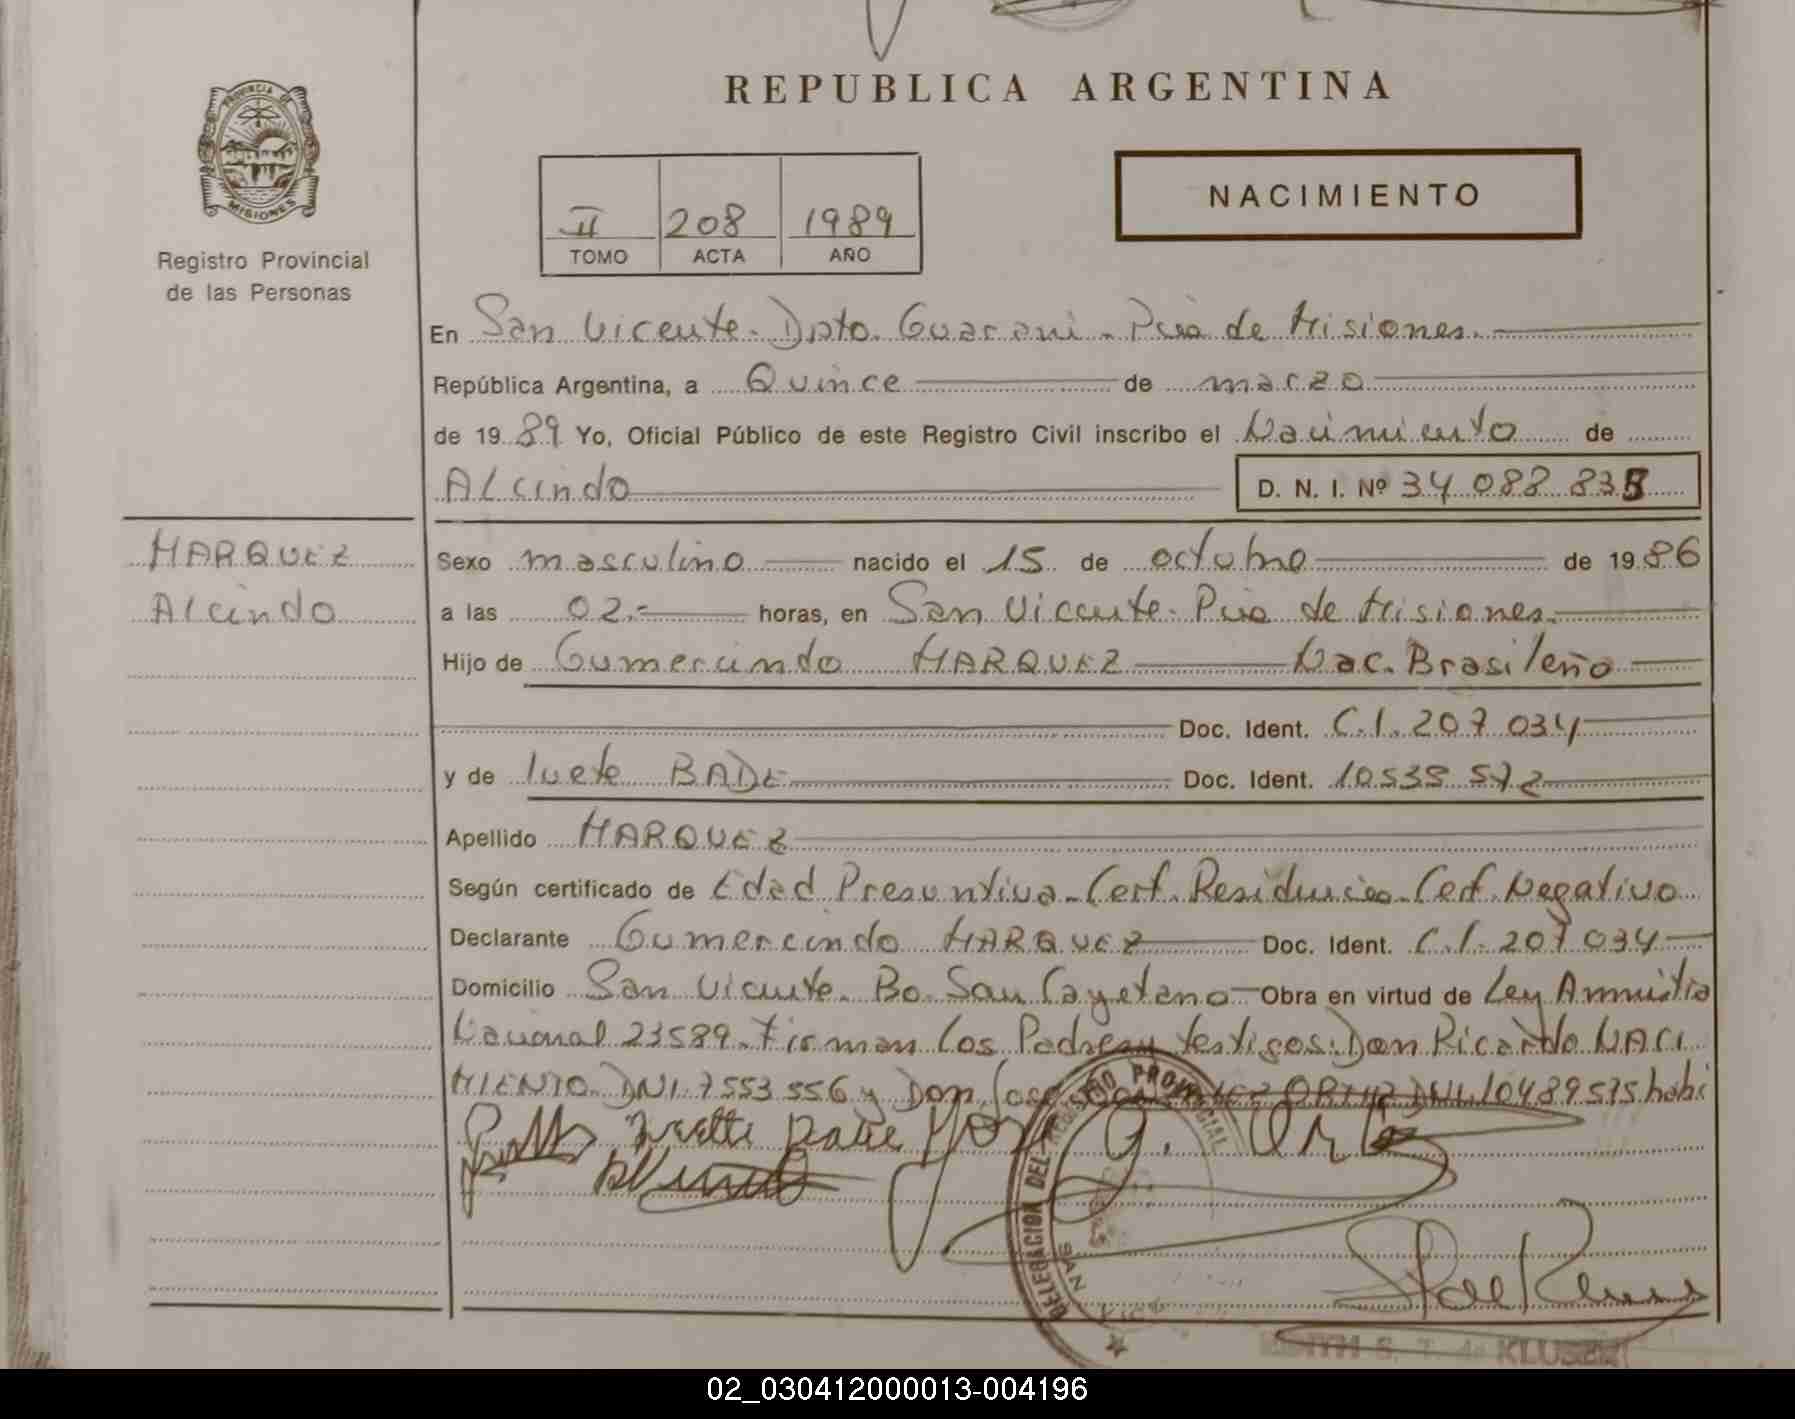 REPUBLICA ARGENTINA
PROVINCIA DE
MISIONES
Registro Provincial
de las Personas
II 208 1989
TOMO ACTA AÑO
NACIMIENTO
En San Vicente. Dpto. Guarani - Pcia de Misiones.
República Argentina, a Quince de marzo
de 1989 Yo, Oficial Público de este Registro Civil inscribo el Nacimiento de
Alcindo D. N. I. Nº 34 088 835
MARQUEZ
Alcindo
Sexo masculino nacido el 15 de octubre de 1986
a las 02.- horas, en San Vicente. Pcia de Misiones.
Hijo de Gumercindo MARQUEZ Nac. Brasileño
Doc. Ident. C.I. 207 034
y de Ivete BADE Doc. Ident. 10535 572
Apellido MARQUEZ
Según certificado de Edad Presuntiva - Cert. Residencia - Cert. Negativo
Declarante Gumercindo MARQUEZ Doc. Ident. C.I. 207 034
Domicilio San Vicente. Bo. San Cayetano Obra en virtud de Ley Amnistia
Nacional 23589. Firman los Padres y testigos: Don Ricardo NACI
MIENTO. DNI. 7553 556 y Don José ORTIZ DNI. 10489575 habi
DELEGACION DEL REGISTRO PROVINCIAL
SAN VICE
S. T. de KLUSENER
02_030412000013-004196